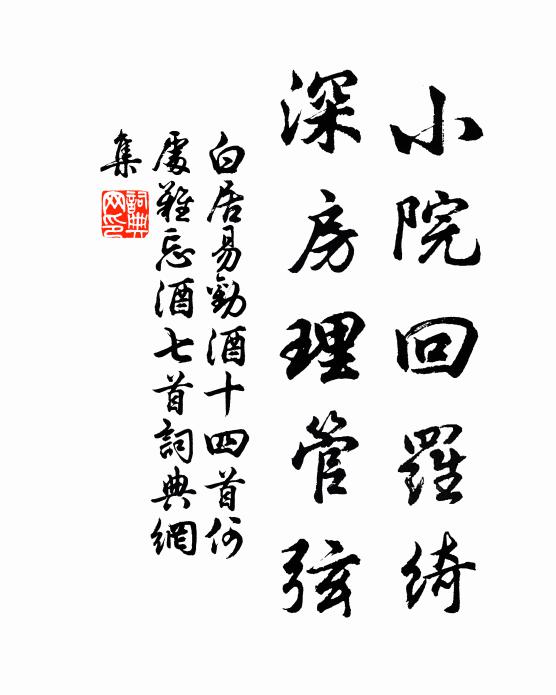 小院回羅綺
深房理管弦
白居易勸酒十四首何
處難忘酒七首詞典網
集
詞典
网印